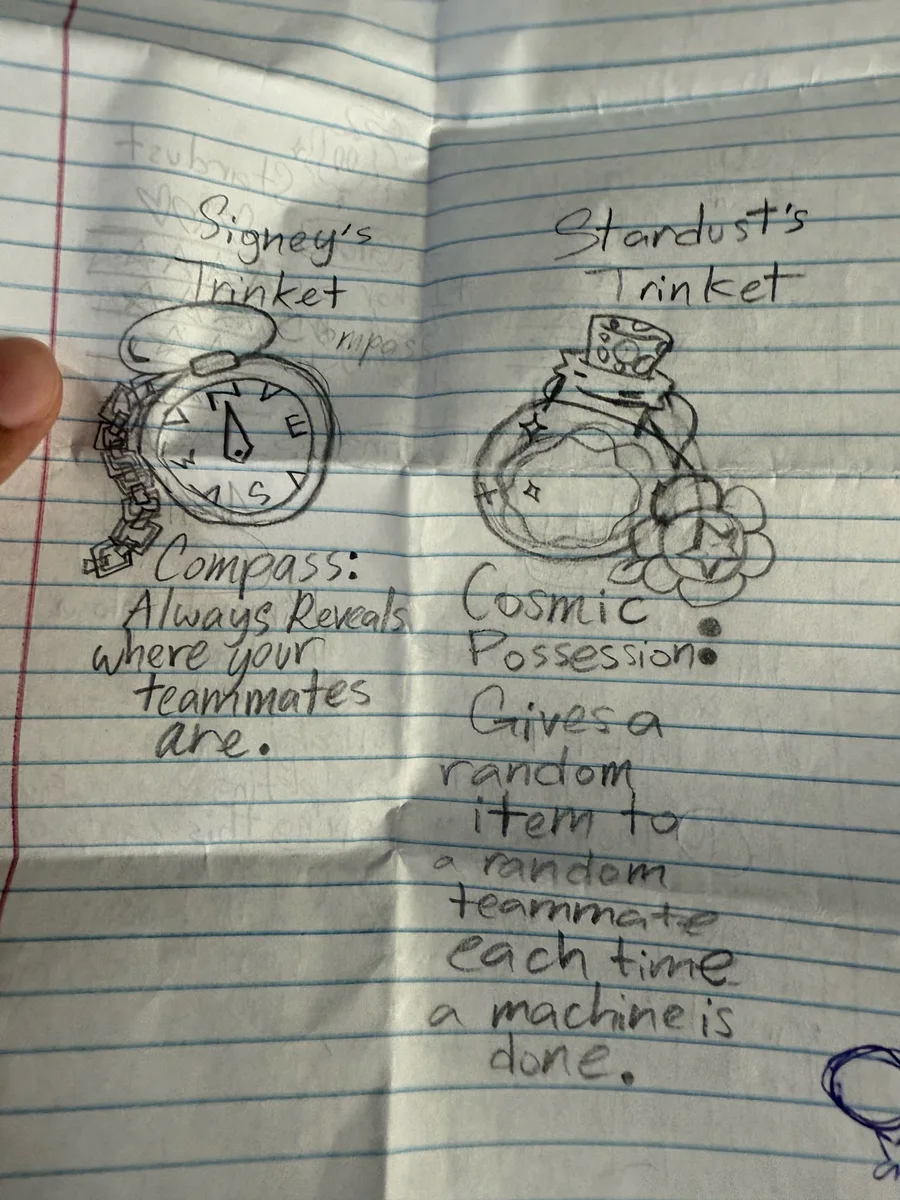 Signey's
Trinket
Compass:
Always Reveals
where your
teammates
are.
Stardust's
Trinket
Cosmic
Possession:
Gives a
random
item to
a random
teammate
each time
a machine is
done.
E
S